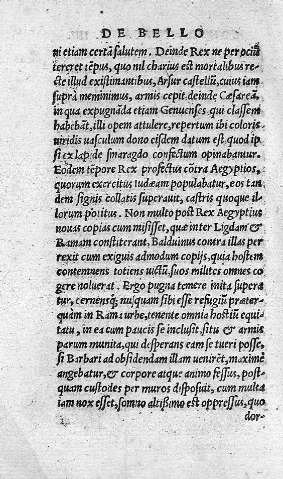 DE BELLO
ni etiam certã salutem. Deinde Rex ne per ociũ
tereret tẽpus, quo nil charius est mortalibus re-
cte illud existimantibus, Arsur castellũ, cuius iam
suprà meminimus, armis cepit. deinde Cæsareã,
in qua expugnãda etiam Genuenses qui classem
habebãt, illi opem attulere, repertum ibi coloris
uiridis uasculum dono eisdem datum est quod ip
si ex lapide smaragdo confectum opinabantur.
Eodem tẽpore Rex profectus cõtra Aegyptios,
quorum exercitus Iudæam populabatur, eos tan
dem signis collatis superauit, castris quoque il-
lorum potitus. Non multo pòst Rex Aegyptius
nouas copias cum misisset, quæ inter Liddam &
Ramam constiterant. Balduinus contra illas per
rexit cum exiguis admodum copijs, quia hostem
contemnens toties uictũ, suos milites omnes co
gere noluerat. Ergo pugna temere inita supera
tur, cernensq; nusquam sibi esse refugiũ præter-
quàm in Rama urbe, tenente omnia hostiũ equi
tatu, in ea cum paucis se inclusit. situ & armis
parum munita, qui desperans eam se tueri posse,
si Barbari ad obsidendam illam uenirẽt, maximè
angebatur, & corpore atque animo fessus, post-
quam custodes per muros disposuit, cum multa
iam nox esset, somno altissimo est oppressus, quo
dor-